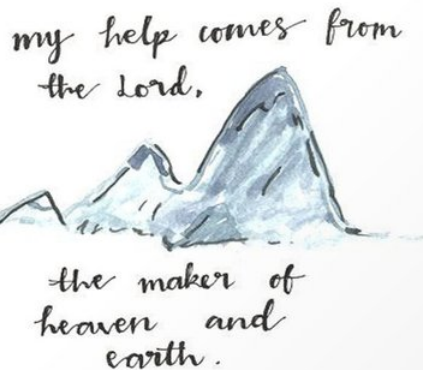 my help comes from
the Lord,
the maker of
heaven and
earth.